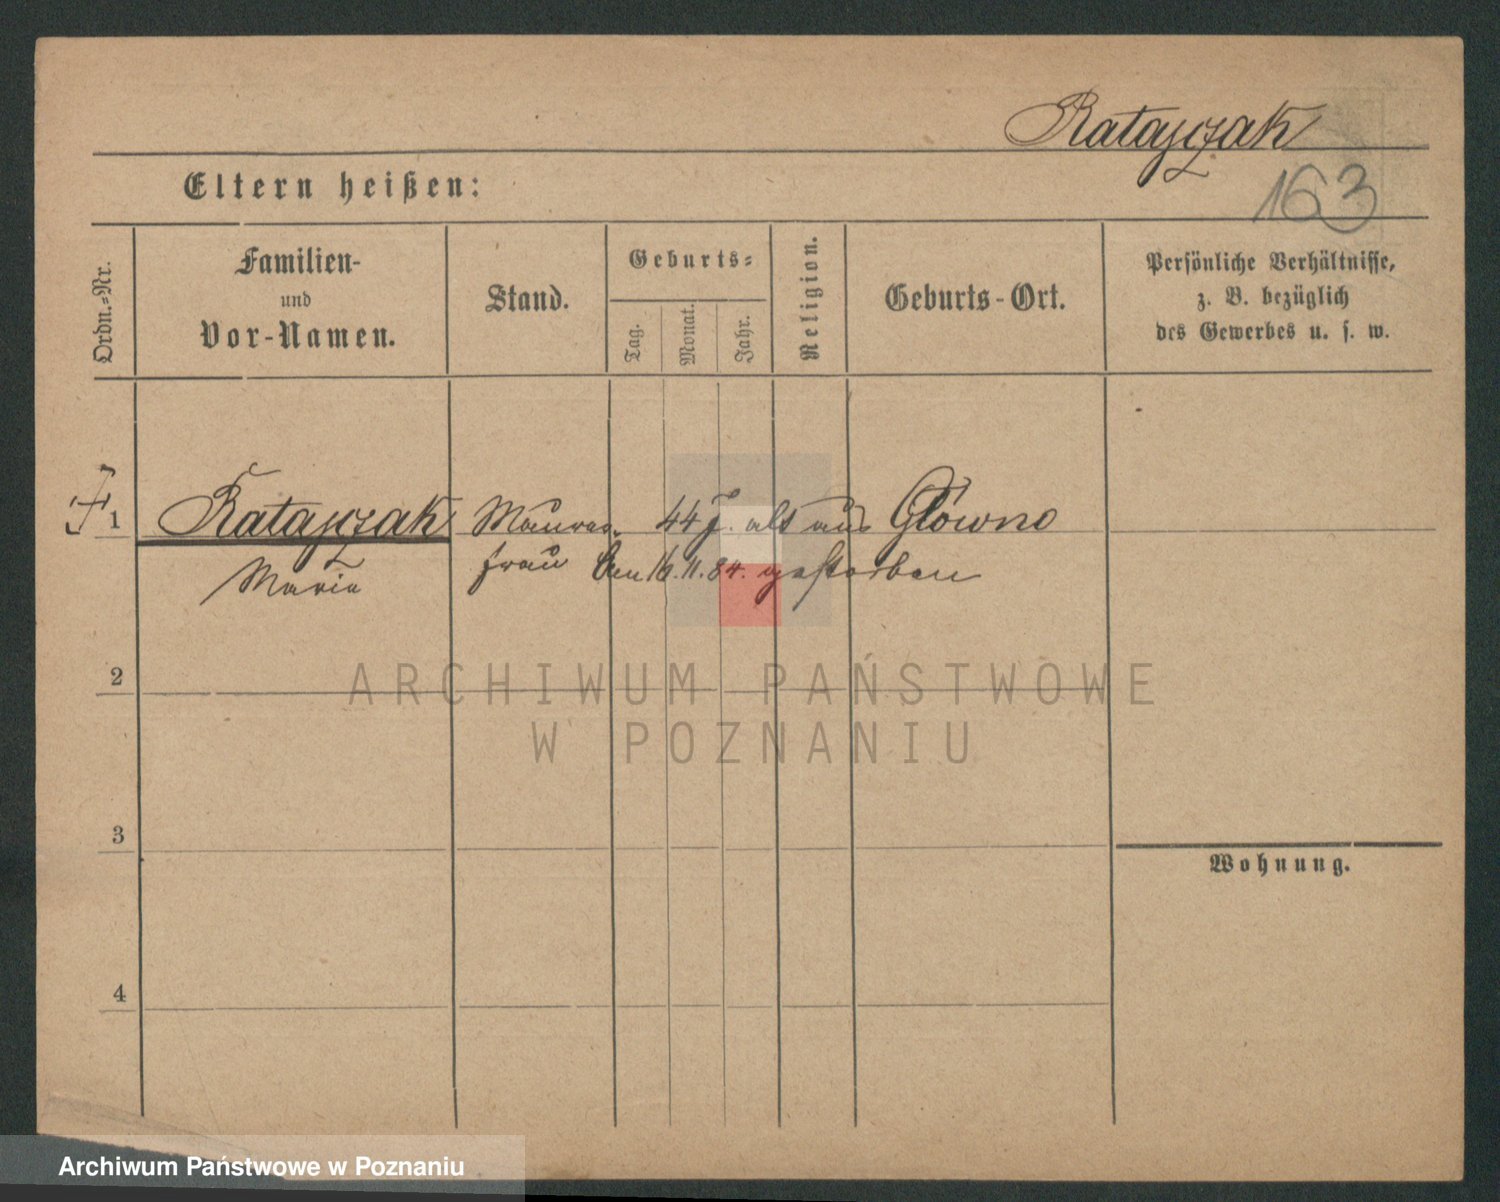 Ratajczak
Eltern heißen:
163
Ordn.-Nr.
Familien-
und
Vor-Namen.
Stand.
Geburts-
Tag.
Monat.
Jahr.
Religion.
Geburts-Ort.
Persönliche Verhältnisse,
z. B. bezüglich
des Gewerbes u. s. w.
1 Ratajczak Maurer 44 J. alt aus Główno
Maria frau am 16.11.84. gestorben
2
ARCHIWUM PAŃSTWOWE
W POZNANIU
3
Wohnung.
4
Archiwum Państwowe w Poznaniu